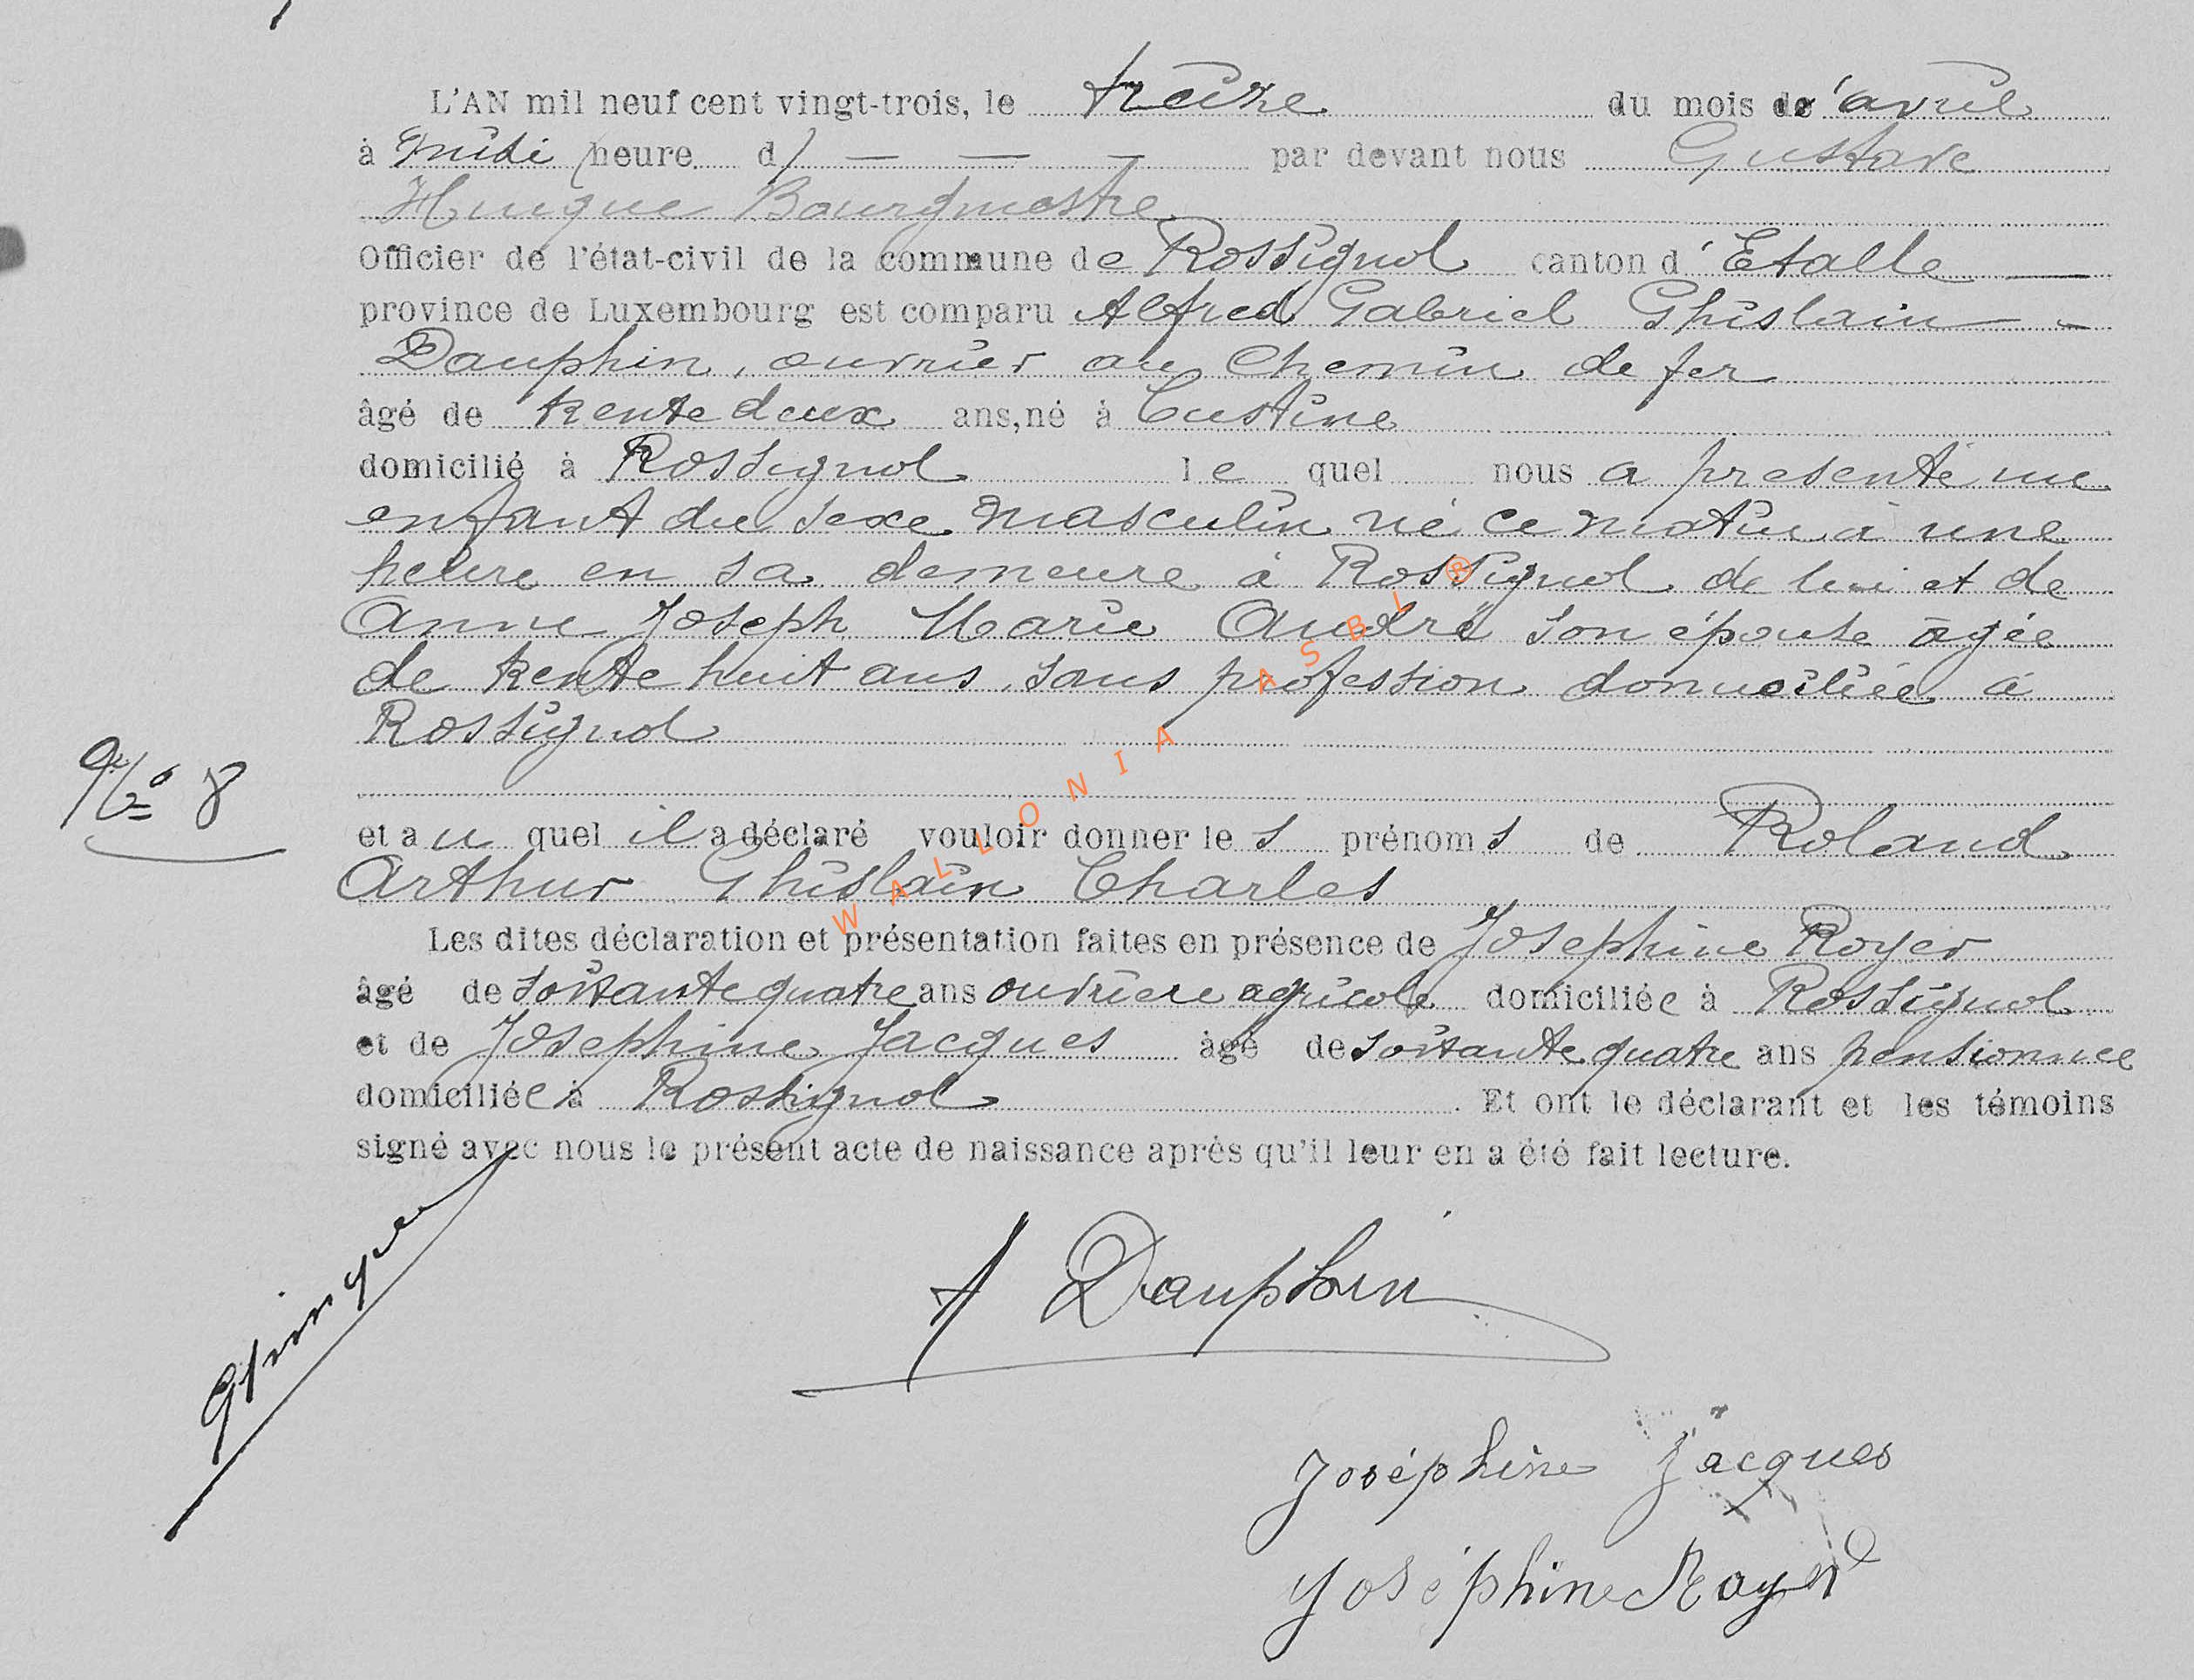 L'AN mil neuf cent vingt-trois, le treize du mois de 'avril
à midi heure d/ — — — par devant nous Gustave
Hinque Bourgmestre
Officier de l'état-civil de la commune de Rossignol canton d' Etalle —
province de Luxembourg est comparu Alfred Gabriel Ghislain —
Dauphin, ouvrier au Chemin de fer
âgé de trente deux ans, né à Custine
domicilié à Rossignol le quel nous a présenté un
enfant du sexe masculin né ce matin à une
heure en sa demeure à Rossignol de lui et de
Anne Joseph Marie André son épouse âgée
de trente huit ans, sans profession domiciliée à
Rossignol
No 8
et au quel il a déclaré vouloir donner les prénoms de Roland
Arthur Ghislain Charles
Les dites déclaration et présentation faites en présence de Josephine Royer
âgé de soixante quatre ans ouvrière agricole domiciliée à Rossignol
et de Josephine Jacques âgé de soixante quatre ans pensionnée
domiciliée à Rossignol. Et ont le déclarant et les témoins
signé avec nous le présent acte de naissance après qu'il leur en a été fait lecture.
A Dauphin
Joséphine Jacques
Joséphine Royer
WALLONIA ASBL ®